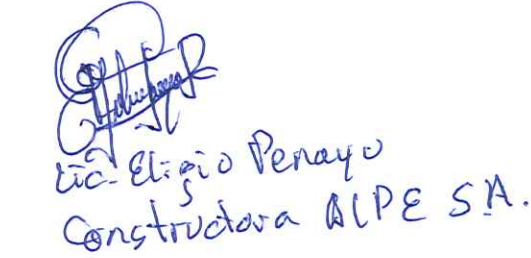 Lic. Eligio Penayo
Constructora ALPE S.A.